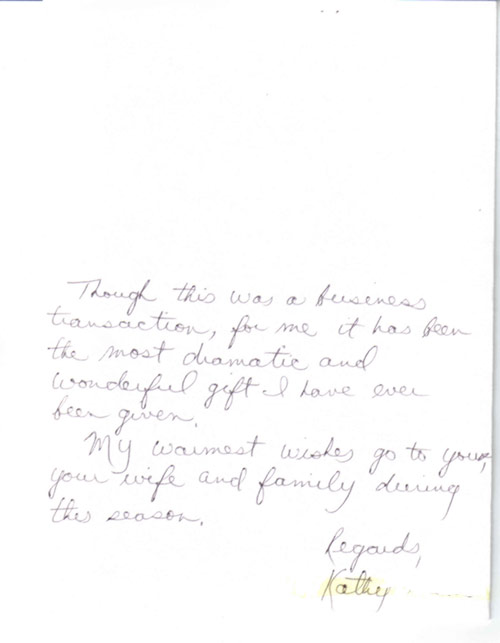 Though this was a business
transaction, for me it has been
the most dramatic and
wonderful gift I have ever
been given.
My warmest wishes go to you,
your wife and family during
this season.
Regards,
Kathy